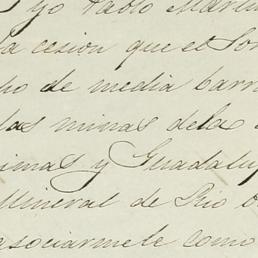 yo Pablo Mart
la cesion que el Sor
ho de media barr
las minas dela
imas y Guadalup
Mineral de Rio
asociarmele como